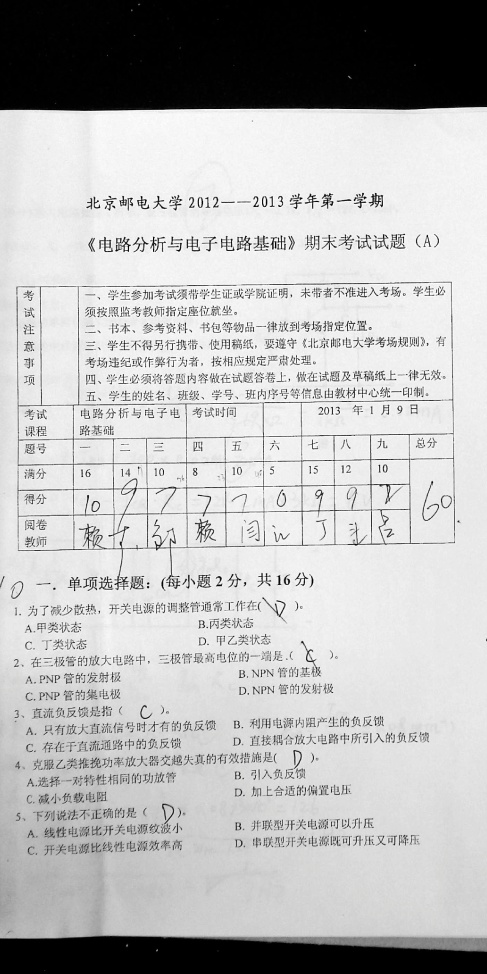 北京邮电大学 2012——2013 学年第一学期
《电路分析与电子电路基础》期末考试试题（A）
考试注意事项
一、学生参加考试须带学生证或学院证明，未带者不准进入考场。学生必
须按照监考教师指定座位就坐。
二、书本、参考资料、书包等物品一律放到考场指定位置。
三、学生不得另行携带、使用稿纸，要遵守《北京邮电大学考场规则》，有
考场违纪或作弊行为者，按相应规定严肃处理。
四、学生必须将答题内容做在试题答卷上，做在试题及草稿纸上一律无效。
五、学生的姓名、班级、学号、班内序号等信息由教材中心统一印制。
考试课程 电路分析与电子电路基础 考试时间 2013 年 1 月 9 日
题号 一 二 三 四 五 六 七 八 九 总分
满分 16 14 10 8 10 5 15 12 10
得分 10 9 7 7 7 0 9 9 2 60
阅卷教师 赖 邹 赖 闫 江 丁
10 一．单项选择题：(每小题 2 分，共 16 分)
1. 为了减少散热，开关电源的调整管通常工作在( D )。
A.甲类状态 B.丙类状态
C. 丁类状态 D. 甲乙类状态
2、在三极管的放大电路中，三极管最高电位的一端是.( C )。
A. PNP 管的发射极 B. NPN 管的基极
C. PNP 管的集电极 D. NPN 管的发射极
3、直流负反馈是指（ C ）。
A. 只有放大直流信号时才有的负反馈 B. 利用电源内阻产生的负反馈
C. 存在于直流通路中的负反馈 D. 直接耦合放大电路中所引入的负反馈
4、克服乙类推挽功率放大器交越失真的有效措施是( D )。
A.选择一对特性相同的功放管 B. 引入负反馈
C. 减小负载电阻 D. 加上合适的偏置电压
5、下列说法不正确的是（ D ）。
A. 线性电源比开关电源纹波小 B. 并联型开关电源可以升压
C. 开关电源比线性电源效率高 D. 串联型开关电源既可升压又可降压